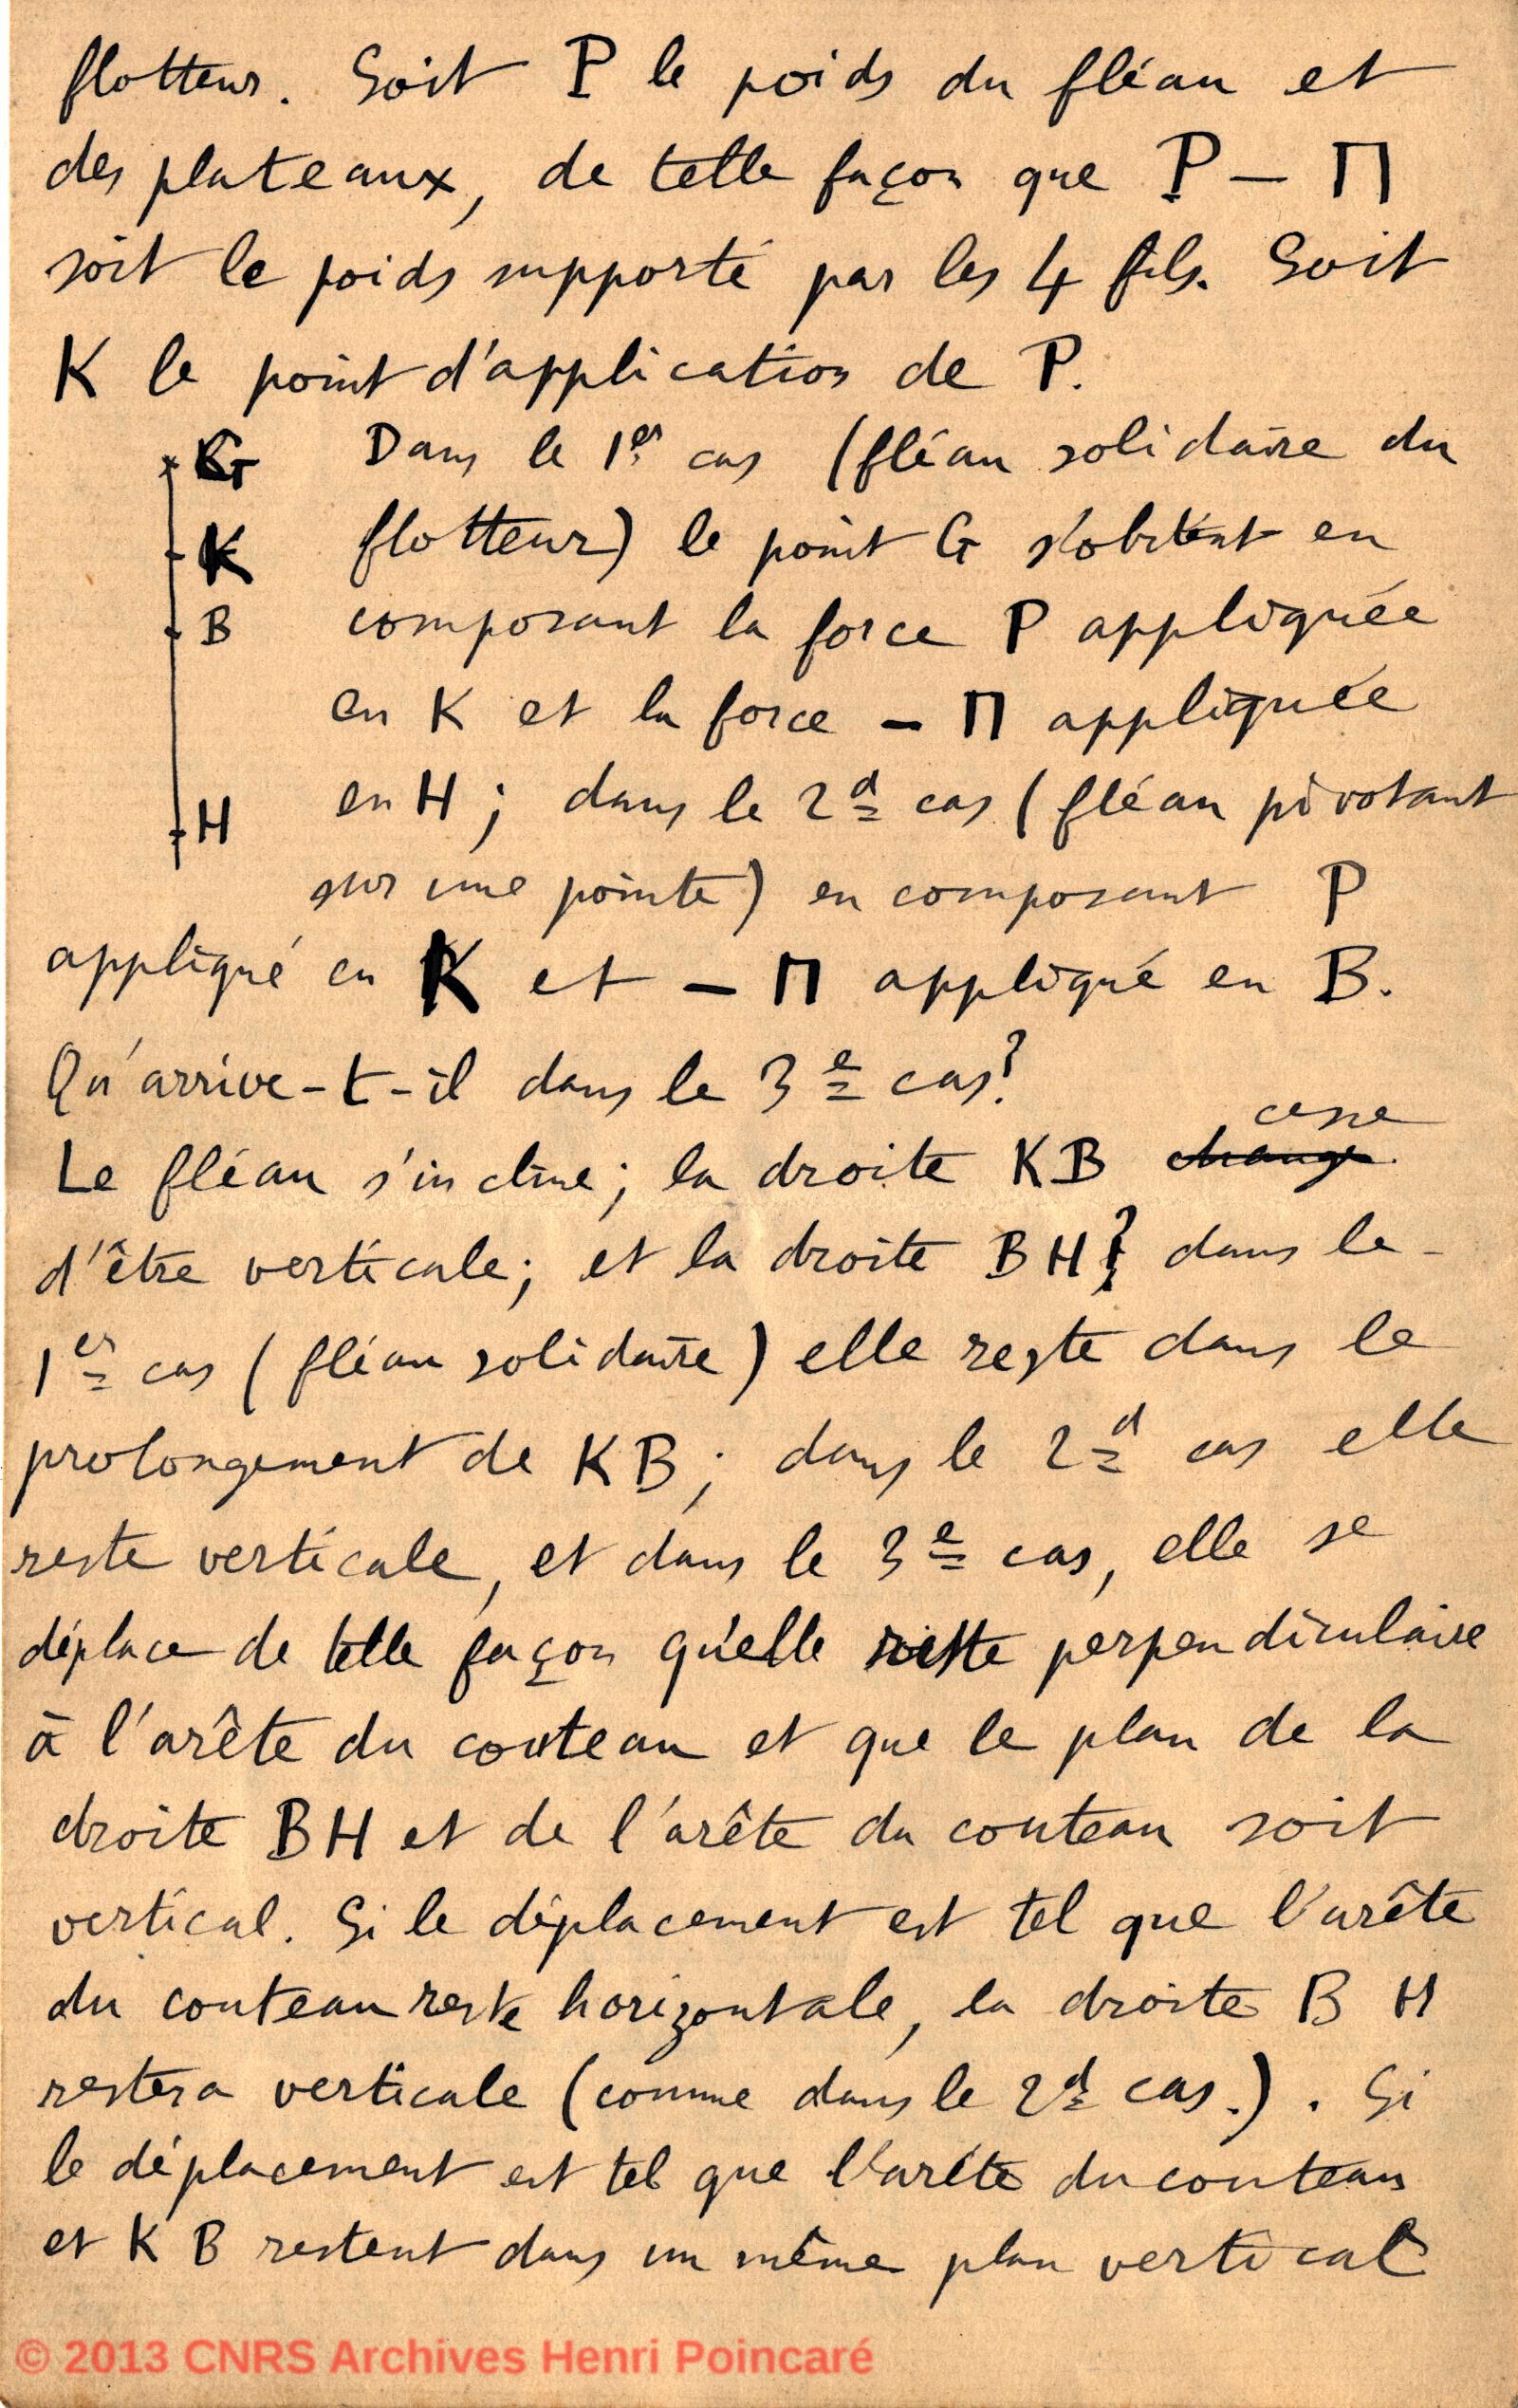 flotteur. Soit P le poids du fléau et
des plateaux, de telle façon que P — Π
soit le poids supporté par les 4 fils. Soit
K le point d'application de P.
G
K
B
H
Dans le 1er cas (fléau solidaire du
flotteur) le point G s'obtient en
composant la force P appliquée
en K et la force — Π appliquée
en H ; dans le 2d cas (fléau pivotant
sur une pointe) en composant P
appliqué en K et — Π appliqué en B.
Qu'arrive-t-il dans le 3e cas?
cesse
Le fléau s'incline; la droite KB change
d'être verticale; et la droite BH? dans le
1er cas (fléau solidaire) elle reste dans le
prolongement de KB; dans le 2d cas elle
reste verticale, et dans le 3e cas, elle se
déplace de telle façon qu'elle reste perpendiculaire
à l'arête du couteau et que le plan de la
droite BH et de l'arête du couteau soit
vertical. Si le déplacement est tel que l'arête
du couteau reste horizontale, la droite B H
restera verticale (comme dans le 2d cas.). Si
le déplacement est tel que l'arête du couteau
et K B restent dans un même plan vertical
© 2013 CNRS Archives Henri Poincaré